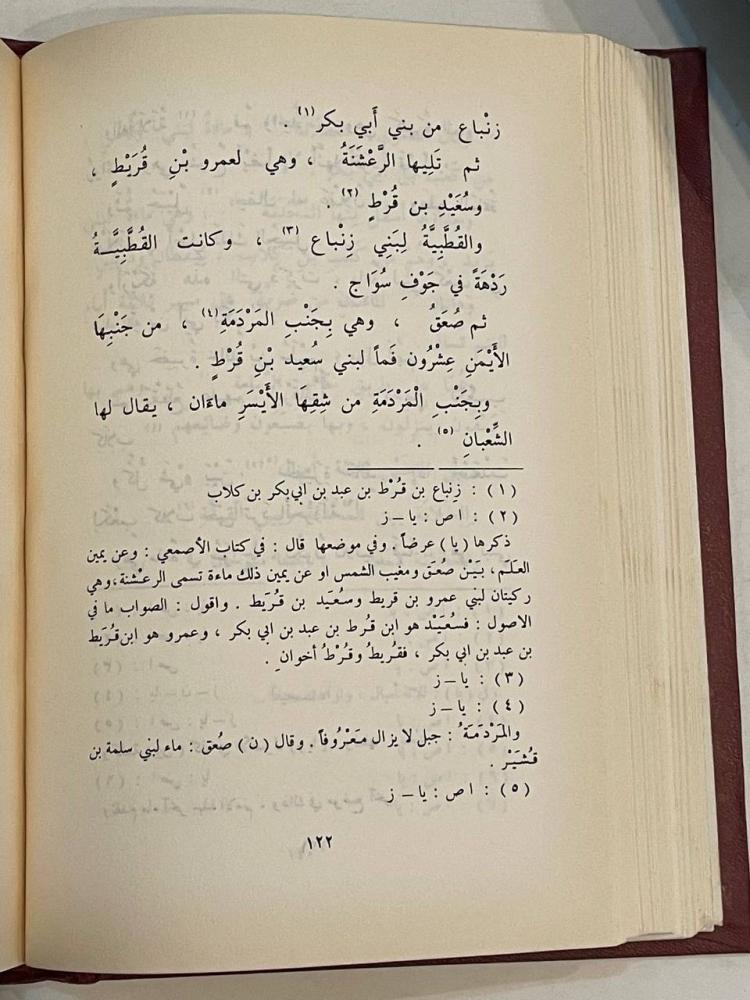 زنْباع من بني أَبي بكر(١) .
ثم تَلِيها الرَّعْشَنَةُ ، وهي لعمرو بْنِ قُرَيْطٍ ،
وسُعَيْدِ بن قُرْطٍ (٢) .
والقُطَّبِيَّةُ لِبَنِي زِنْباع (٣) ، وكانت القُطَّبِيَّــةُ
رَدْهَةً في جَوْفِ سُوَاج .
ثم صُعَقُ ، وهي بِجَنْبِ المَرْدَمَةِ(٤) ، من جَنْبِهَا
الأَيْمَنِ عِشْرُون فَماً لبني سُعيد بْنِ قُرْطٍ .
وبِجَنْبِ الْمَرْدَمَةِ من شِقِهَا الأَيْسَرِ ماءَان ، يقال لها
الشِّعْبانِ (٥) .
(١) : زِنباع بن قُرْط بن عبد بن ابي بكر بن كلاب
(٢) : اص : يا – ز
ذكرها (يا) عرضاً . وفي موضعها قال : في كتاب الأصمعي : وعن يمين
العلَم ، بَيْن صُعَق ومغيب الشمس او عن يمين ذلك ماءة تسمى الرعْشنة ، وهي
ركيتان لبني عمرو بن قريط وسعَيد بن قُرَيط . واقول : الصواب ما في
الاصول : فسُعَيَدْ هو ابن قُرط بن عبد بن ابي بكر ، وعمرو هو ابن قُرَيط
بن عبد بن ابي بكر ، فقُريطُ وقُرْطُ أخوانِ .
(٣) : يا – ز
(٤) : يا – ز
والمَرْدَمَةُ : جبل لا يزال مَعْرُوفاً . وقال (ن) صُعق : ماء لبني سلمة بن
قُشَيْر .
(٥) : اص : يا – ز
١٢٢